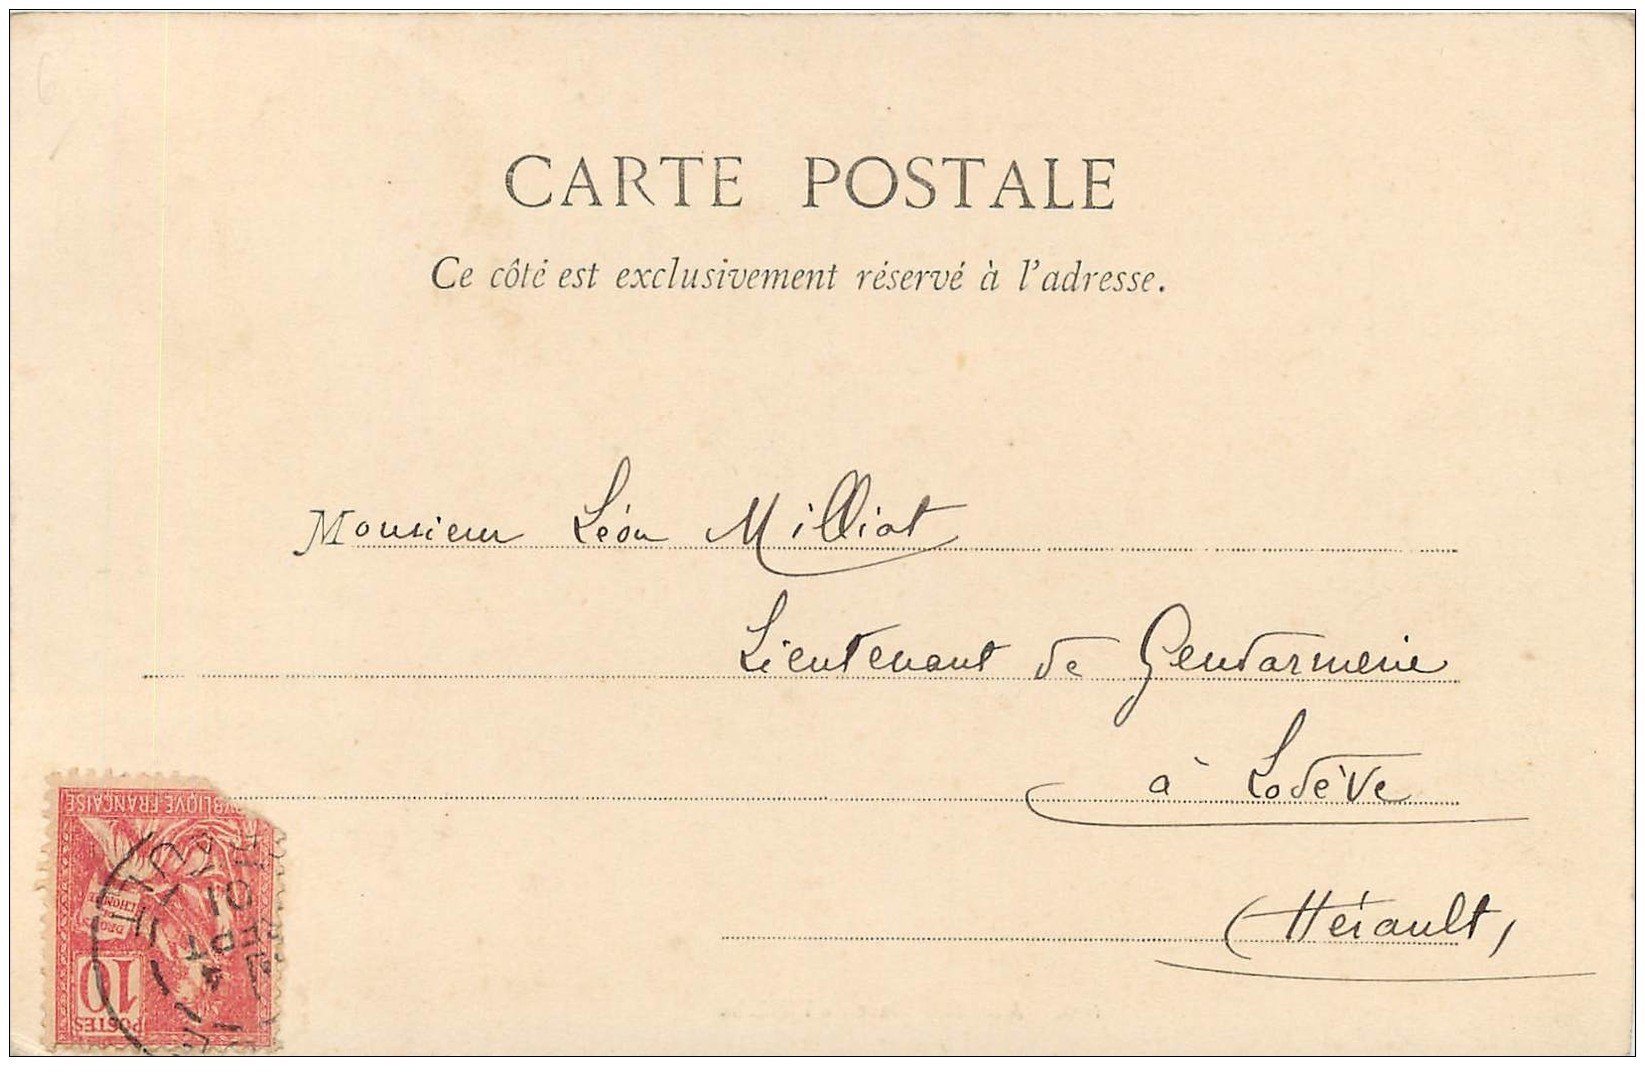 CARTE POSTALE
Ce côté est exclusivement réservé à l'adresse.
Monsieur Léon Milliat
Lieutenant de Gendarmerie
à Lodève
(Hérault)
REPUBLIQUE FRANÇAISE
10
POSTES
SEPT
01